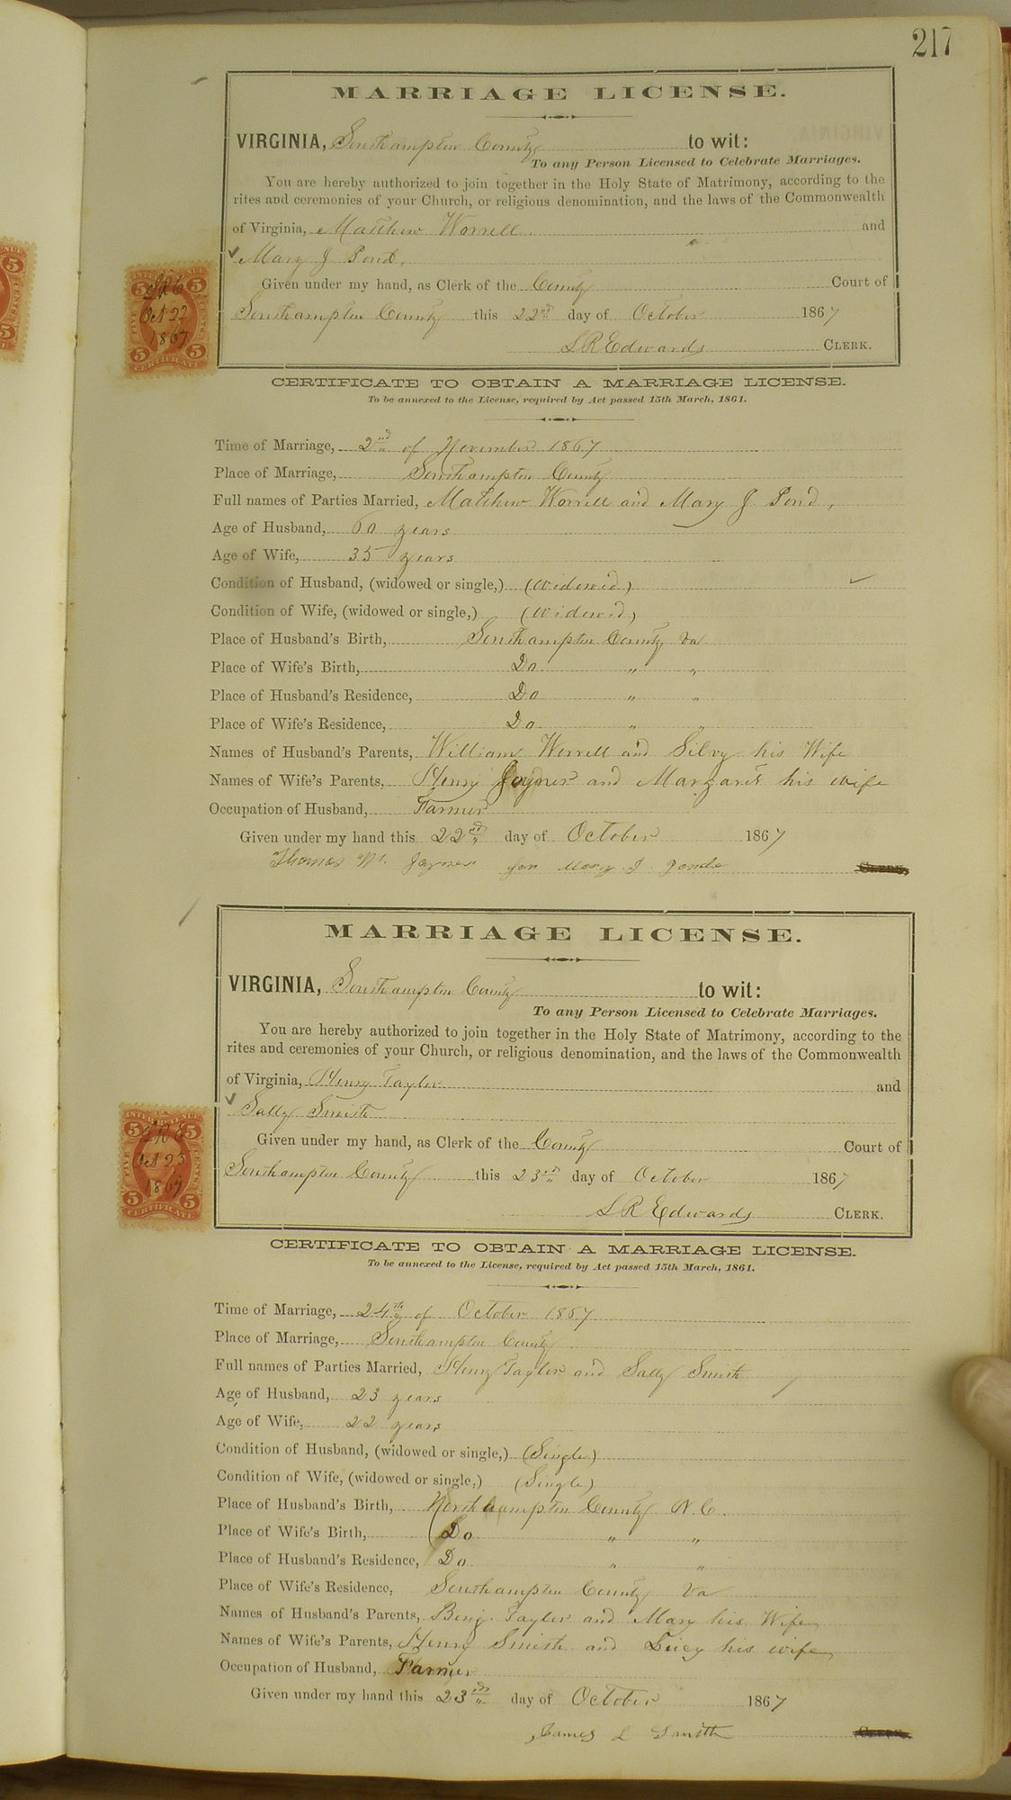 217
MARRIAGE LICENSE.
VIRGINIA, Southampton County to wit:
To any Person Licensed to Celebrate Marriages.
You are hereby authorized to join together in the Holy State of Matrimony, according to the
rites and ceremonies of your Church, or religious denomination, and the laws of the Commonwealth
of Virginia, Matthew Worrell and
Mary J Pond,
Given under my hand, as Clerk of the County Court of
Southampton County this 22nd day of October 1867
L R Edwards CLERK.
Oct 22
1867
CERTIFICATE TO OBTAIN A MARRIAGE LICENSE.
To be annexed to the License, required by Act passed 15th March, 1861.
Time of Marriage, 2nd of November 1867
Place of Marriage, Southampton County
Full names of Parties Married, Matthew Worrell and Mary J Pond,
Age of Husband, 60 years
Age of Wife, 35 years
Condition of Husband, (widowed or single,) (Widowed)
Condition of Wife, (widowed or single,) (Widowed)
Place of Husband's Birth, Southampton County Va
Place of Wife's Birth, Do " "
Place of Husband's Residence, Do " "
Place of Wife's Residence, Do " "
Names of Husband's Parents, William Worrell and Silvy his Wife
Names of Wife's Parents, Henry Joyner and Margaret his wife
Occupation of Husband, Farmer
Given under my hand this 22nd day of October 1867
Thomas Joyner for Mary J Ponds CLERK.
MARRIAGE LICENSE.
VIRGINIA, Southampton County to wit:
To any Person Licensed to Celebrate Marriages.
You are hereby authorized to join together in the Holy State of Matrimony, according to the
rites and ceremonies of your Church, or religious denomination, and the laws of the Commonwealth
of Virginia, Henry Taylor and
Sally Smith
Given under my hand, as Clerk of the County Court of
Southampton County this 23rd day of October 1867
L R Edwards CLERK.
Oct 23
1867
CERTIFICATE TO OBTAIN A MARRIAGE LICENSE.
To be annexed to the License, required by Act passed 15th March, 1861.
Time of Marriage, 24th of October 1867
Place of Marriage, Southampton County
Full names of Parties Married, Henry Taylor and Sally Smith
Age of Husband, 23 years
Age of Wife, 22 years
Condition of Husband, (widowed or single,) (Single)
Condition of Wife, (widowed or single,) (Single)
Place of Husband's Birth, Northampton County N.C.
Place of Wife's Birth, Do " "
Place of Husband's Residence, Do " "
Place of Wife's Residence, Southampton County Va
Names of Husband's Parents, Benj. Taylor and Mary his Wife
Names of Wife's Parents, Henry Smith and Lucy his wife
Occupation of Husband, Farmer
Given under my hand this 23rd day of October 1867
James L Smith CLERK.